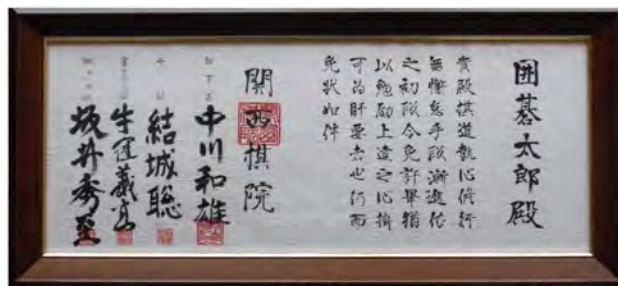 囲碁太郎殿
貴殿棋道執心修行
無懈怠手段漸進依
之初段令免許畢猶
以勉励上達之心掛
可為肝要者也仍而
免状如件
関西棋院
中川和雄
結城聡
牛窪義高
坂井秀至